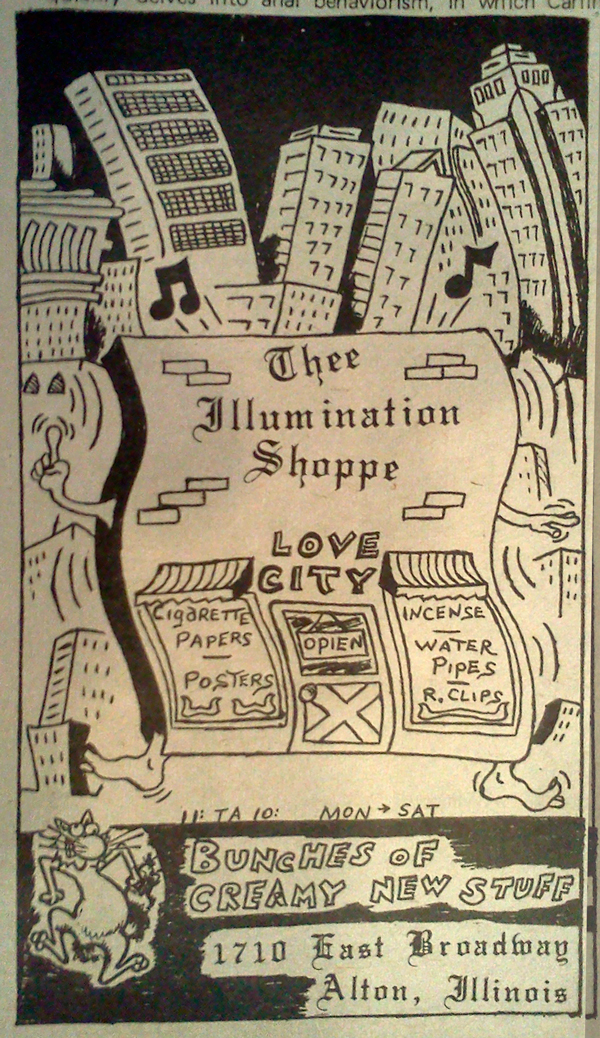 quickly delves into anal behaviorism, in which
Thee
Illumination
Shoppe
LOVE
CITY
CigaRETTE
PAPERS
—
POSTERS
OPIEN
INCENSE
—
WATER
PIPES
—
R. CLIPS
11: TA 10: MON → SAT
BUNCHES OF
CREAMY NEW STUFF
1710 East Broadway
Alton, Illinois